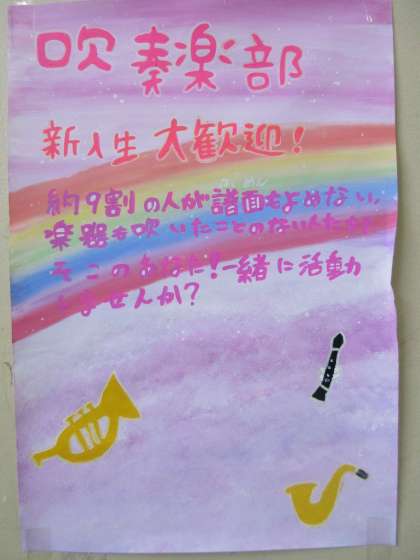 吹奏楽部
新入生 大歓迎!
約9割の人が譜面もよめない、
楽器も吹いたことのない人たち
そこのあなた!一緒に活動
しませんか?